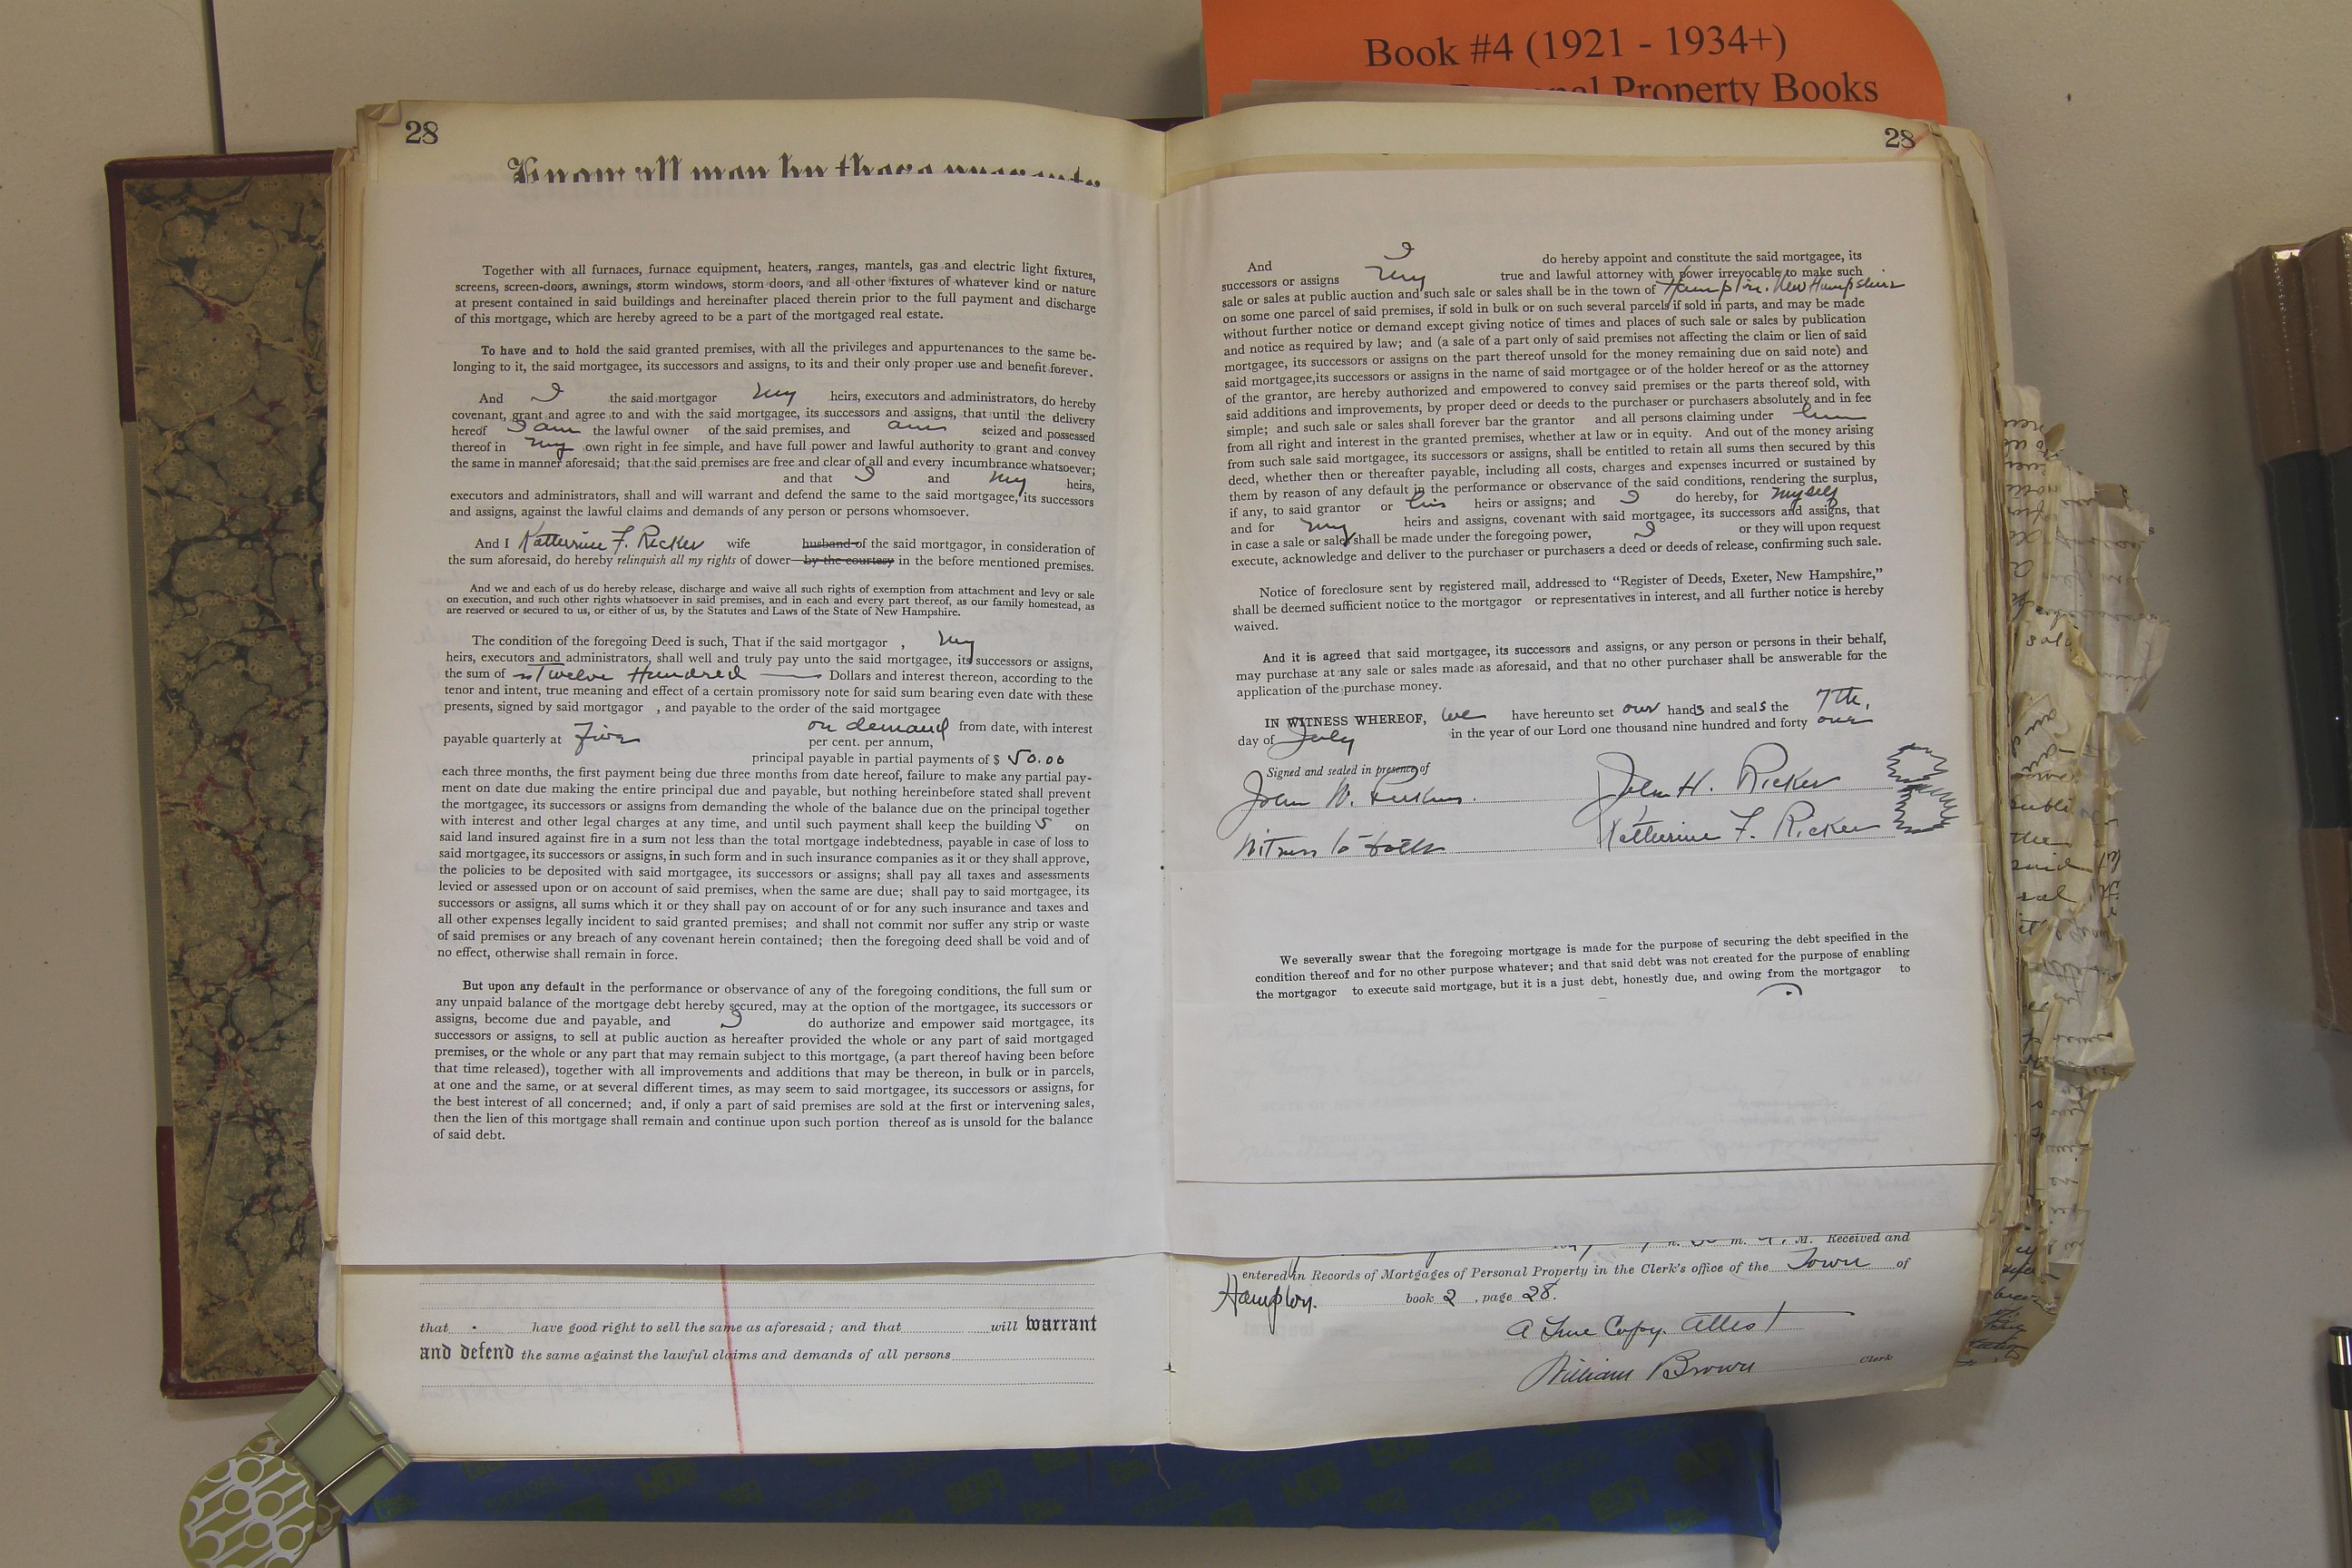 Book #4 (1921 - 1934+)
Personal Property Books
28
Know all men by these presents
Together with all furnaces, furnace equipment, heaters, ranges, mantels, gas and electric light fixtures,
screens, screen-doors, awnings, storm windows, storm doors, and all other fixtures of whatever kind or nature
at present contained in said buildings and hereinafter placed therein prior to the full payment and discharge
of this mortgage, which are hereby agreed to be a part of the mortgaged real estate.
To have and to hold the said granted premises, with all the privileges and appurtenances to the same be-
longing to it, the said mortgagee, its successors and assigns, to its and their only proper use and benefit forever.
And I the said mortgagor my heirs, executors and administrators, do hereby
covenant, grant and agree to and with the said mortgagee, its successors and assigns, that until the delivery
hereof I am the lawful owner of the said premises, and am seized and possessed
thereof in my own right in fee simple, and have full power and lawful authority to grant and convey
the same in manner aforesaid; that the said premises are free and clear of all and every incumbrance whatsoever;
and that I and my heirs,
executors and administrators, shall and will warrant and defend the same to the said mortgagee, its successors
and assigns, against the lawful claims and demands of any person or persons whomsoever.
And I Katherine F. Ricker wife husband of the said mortgagor, in consideration of
the sum aforesaid, do hereby relinquish all my rights of dower by the courtesy in the before mentioned premises.
And we and each of us do hereby release, discharge and waive all such rights of exemption from attachment and levy or sale
on execution, and such other rights whatsoever in said premises, and in each and every part thereof, as our family homestead, as
are reserved or secured to us, or either of us, by the Statutes and Laws of the State of New Hampshire.
The condition of the foregoing Deed is such, That if the said mortgagor , my
heirs, executors and administrators, shall well and truly pay unto the said mortgagee, its successors or assigns,
the sum of Twelve Hundred Dollars and interest thereon, according to the
tenor and intent, true meaning and effect of a certain promissory note for said sum bearing even date with these
presents, signed by said mortgagor , and payable to the order of the said mortgagee
on demand from date, with interest
payable quarterly at Five per cent. per annum,
principal payable in partial payments of $ 50.00
each three months, the first payment being due three months from date hereof, failure to make any partial pay-
ment on date due making the entire principal due and payable, but nothing hereinbefore stated shall prevent
the mortgagee, its successors or assigns from demanding the whole of the balance due on the principal together
with interest and other legal charges at any time, and until such payment shall keep the building s on
said land insured against fire in a sum not less than the total mortgage indebtedness, payable in case of loss to
said mortgagee, its successors or assigns, in such form and in such insurance companies as it or they shall approve,
the policies to be deposited with said mortgagee, its successors or assigns; shall pay all taxes and assessments
levied or assessed upon or on account of said premises, when the same are due; shall pay to said mortgagee, its
successors or assigns, all sums which it or they shall pay on account of or for any such insurance and taxes and
all other expenses legally incident to said granted premises; and shall not commit nor suffer any strip or waste
of said premises or any breach of any covenant herein contained; then the foregoing deed shall be void and of
no effect, otherwise shall remain in force.
But upon any default in the performance or observance of any of the foregoing conditions, the full sum or
any unpaid balance of the mortgage debt hereby secured, may at the option of the mortgagee, its successors or
assigns, become due and payable, and I do authorize and empower said mortgagee, its
successors or assigns, to sell at public auction as hereafter provided the whole or any part of said mortgaged
premises, or the whole or any part that may remain subject to this mortgage, (a part thereof having been before
that time released), together with all improvements and additions that may be thereon, in bulk or in parcels,
at one and the same, or at several different times, as may seem to said mortgagee, its successors or assigns, for
the best interest of all concerned; and, if only a part of said premises are sold at the first or intervening sales,
then the lien of this mortgage shall remain and continue upon such portion thereof as is unsold for the balance
of said debt.
that have good right to sell the same as aforesaid; and that will warrant
and defend the same against the lawful claims and demands of all persons
28
And I do hereby appoint and constitute the said mortgagee, its
successors or assigns my true and lawful attorney with power irrevocable to make such
sale or sales at public auction and such sale or sales shall be in the town of Hampton, New Hampshire
on some one parcel of said premises, if sold in bulk or on such several parcels if sold in parts, and may be made
without further notice or demand except giving notice of times and places of such sale or sales by publication
and notice as required by law; and (a sale of a part only of said premises not affecting the claim or lien of said
mortgagee, its successors or assigns on the part thereof unsold for the money remaining due on said note) and
said mortgagee,its successors or assigns in the name of said mortgagee or of the holder hereof or as the attorney
of the grantor, are hereby authorized and empowered to convey said premises or the parts thereof sold, with
said additions and improvements, by proper deed or deeds to the purchaser or purchasers absolutely and in fee
simple; and such sale or sales shall forever bar the grantor and all persons claiming under him
from all right and interest in the granted premises, whether at law or in equity. And out of the money arising
from such sale said mortgagee, its successors or assigns, shall be entitled to retain all sums then secured by this
deed, whether then or thereafter payable, including all costs, charges and expenses incurred or sustained by
them by reason of any default in the performance or observance of the said conditions, rendering the surplus,
if any, to said grantor or his heirs or assigns; and I do hereby, for myself
and for my heirs and assigns, covenant with said mortgagee, its successors and assigns, that
in case a sale or sales shall be made under the foregoing power, I or they will upon request
execute, acknowledge and deliver to the purchaser or purchasers a deed or deeds of release, confirming such sale.
Notice of foreclosure sent by registered mail, addressed to “Register of Deeds, Exeter, New Hampshire,”
shall be deemed sufficient notice to the mortgagor or representatives in interest, and all further notice is hereby
waived.
And it is agreed that said mortgagee, its successors and assigns, or any person or persons in their behalf,
may purchase at any sale or sales made as aforesaid, and that no other purchaser shall be answerable for the
application of the purchase money.
IN WITNESS WHEREOF, we have hereunto set our hands and seals the 7th,
day of July in the year of our Lord one thousand nine hundred and forty one
Signed and sealed in presence of
John W. Perkins. John H. Ricker
Witness to both Katherine F. Ricker
We severally swear that the foregoing mortgage is made for the purpose of securing the debt specified in the
condition thereof and for no other purpose whatever; and that said debt was not created for the purpose of enabling
the mortgagor to execute said mortgage, but it is a just debt, honestly due, and owing from the mortgagor to
M. Received and
entered in Records of Mortgages of Personal Property in the Clerk's office of the Town of
Hampton. book 2 , page 28.
A True Copy. Attest
William Brown Clerk